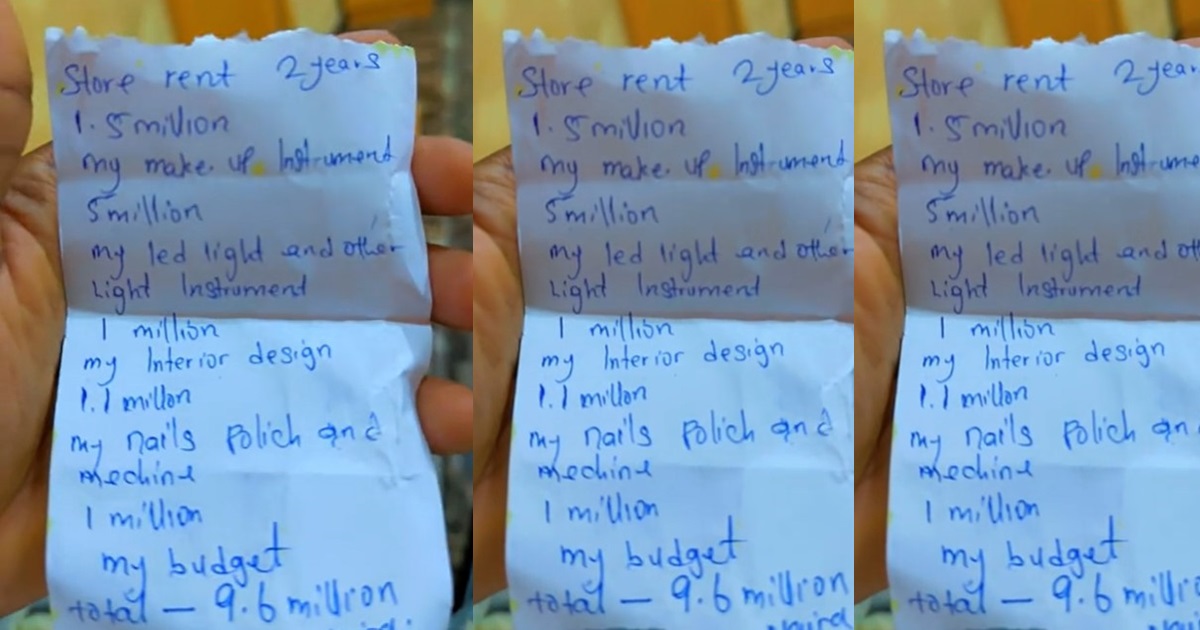 Store rent 2 years
1.5 million
my make. up Instrument
5 million
my led light and other
Light Instrument
1 million
my Interior design
1.1 millon
my nails Polich and
mechine
1 million
my budget
total – 9.6 million
Store rent 2 years
1.5 million
my make. up Instrument
5 million
my led light and other
Light Instrument
1 million
my Interior design
1.1 millon
my nails Polich and
mechine
1 million
my budget
total – 9.6 million
Store rent 2 year
1.5 million
my make. up Instrume
5 million
my led light and oth
Light Instrument
1 million
my Interior design
1.1 millon
my nails Polich an
mechine
1 million
my budget
total – 9.6 milli